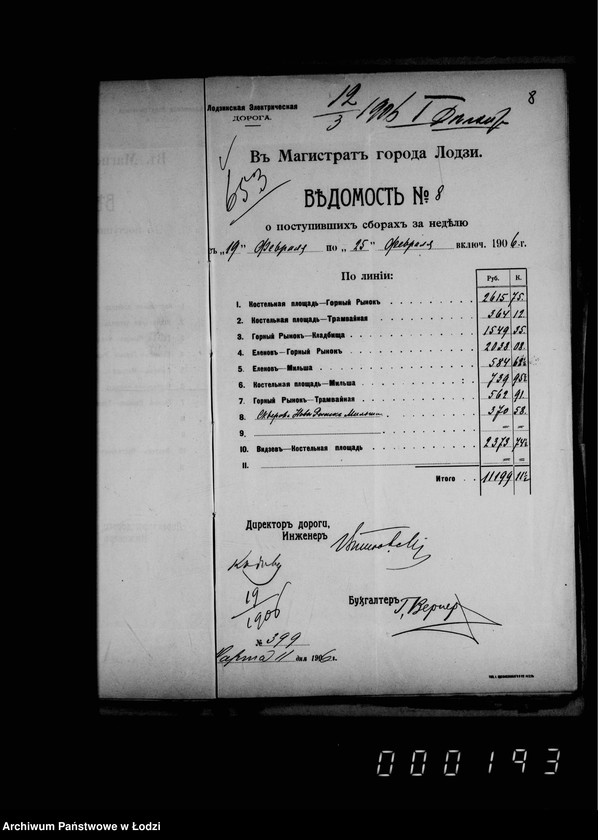 8
Лодзинская Электрическая
ДОРОГА.
12/3 1906 I
Въ Магистратъ города Лодзи.
653
ВѢДОМОСТЬ № 8
о поступившихъ сборахъ за недѣлю
съ „19" Февраля по „25" Февраля включ. 1906 г.
По линіи:
Руб. К.
1. Костельная площадь—Горный Рынокъ 2615 75.
2. Костельная площадь—Трамвайная 364 12.
3. Горный Рынокъ—Кладбища 1549 35.
4. Еленовъ—Горный Рынокъ 2038 08.
5. Еленовъ—Мильша 584 68½
6. Костельная площадь—Мильша 739 95½
7. Горный Рынокъ—Трамвайная 562 91
8. 370 58.
9. — —
10. Видзевъ—Костельная площадь 2373 74½
11. — —
Итого 11199 11½
Директоръ дороги,
Инженеръ
19/1906
Бухгалтеръ Г. Вернер
№ 399
Марта 11 дня 1906 г.
000193
Archiwum Państwowe w Łodzi